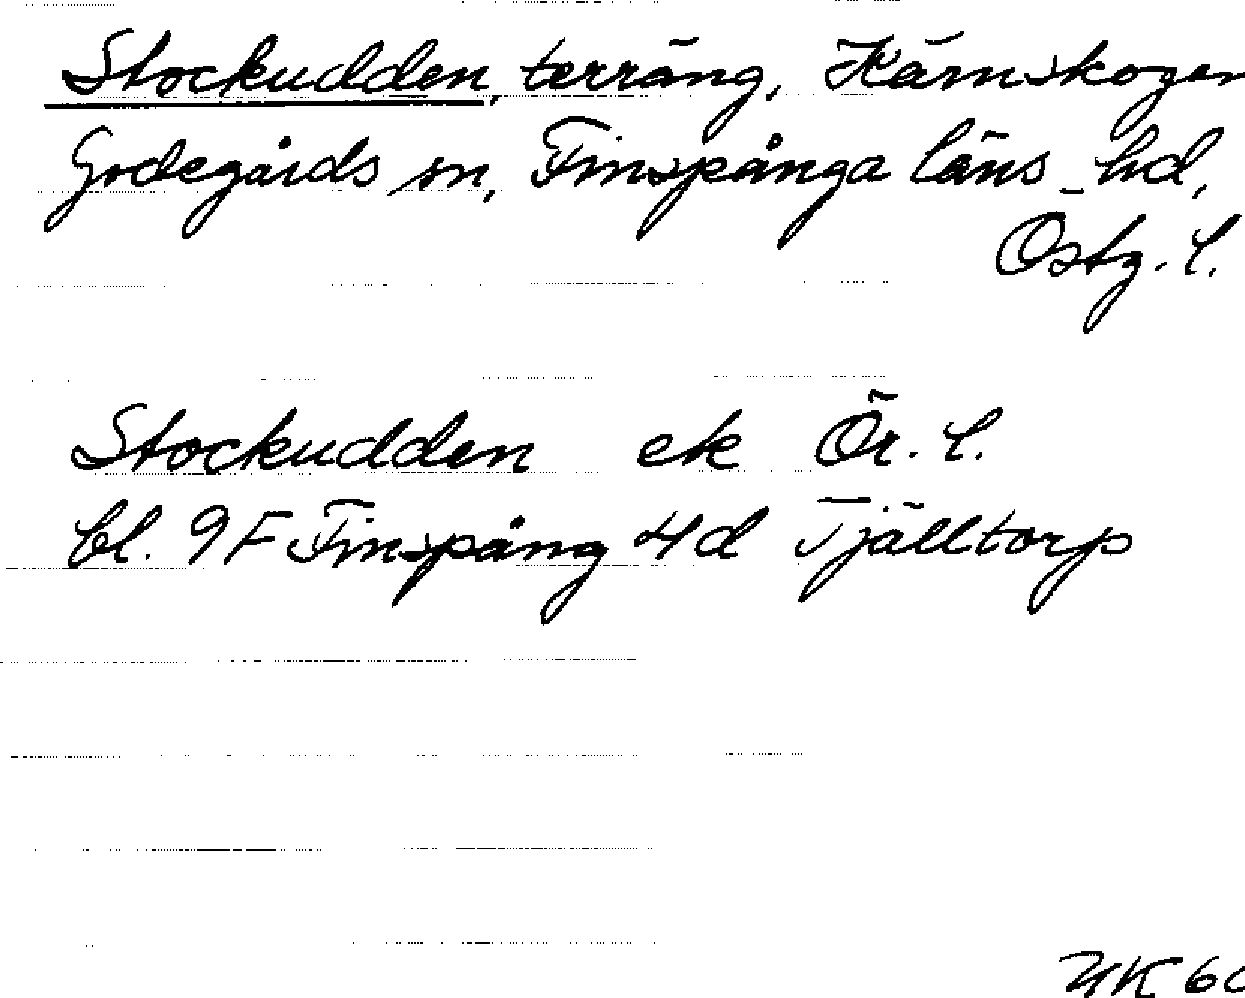 Stockudden, terräng, Kärnskogen
Godegårds sn, Finspånga läns hd,
Östg. l.
Stockudden ek Ör. l.
bl. 9F Finspång 4d Tjälltorp